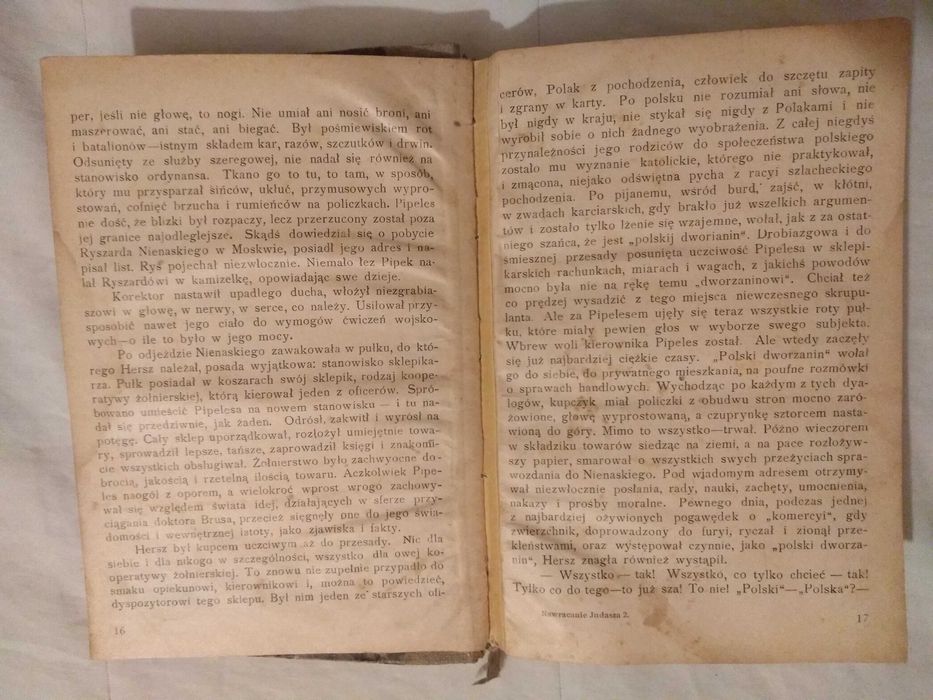 per, jeśli nie głowę, to nogi. Nie umiał ani nosić broni, ani
maszerować, ani stać, ani biegać. Był pośmiewiskiem rot
i batalionów—istnym składem kar, razów, szczutków i drwin.
Odsunięty ze służby szeregowej, nie nadał się również na
stanowisko ordynansa. Tkano go to tu, to tam, w sposób,
który mu przysparzał sińców, ukłuć, przymusowych wypro-
stowań, cofnięć brzucha i rumieńców na policzkach. Pipeles
nie dość, że blizki był rozpaczy, lecz przerzucony został poza
jej granice najodleglejsze. Skądś dowiedział się o pobycie
Ryszarda Nienaskiego w Moskwie, posiadł jego adres i na-
pisał list. Ryś pojechał niezwłocznie. Niemało łez Pipek na-
lał Ryszardówi w kamizelkę, opowiadając swe dzieje.
Korektor nastawił upadłego ducha, włożył niezgrabia-
szowi w głowę, w nerwy, w serce, co należy. Usiłował przy-
sposobić nawet jego ciało do wymogów ćwiczeń wojsko-
wych—o ile to było w jego mocy.
Po odjeździe Nienaskiego zawakowała w pułku, do któ-
rego Hersz należał, posada wyjątkowa: stanowisko sklepika-
rza. Pułk posiadał w koszarach swój sklepik, rodzaj koope-
ratywy żołnierskiej, którą kierował jeden z oficerów. Spró-
bowano umieścić Pipelesa na nowem stanowisku — i tu na-
dał się przedziwnie, jak żaden. Odrósł, zakwitł i wyrósł na
potęgę. Cały sklep uporządkował, rozłożył umiejętnie towa-
ry, sprowadził lepsze, tańsze, zaprowadził księgi i znakomi-
cie wszystkich obsługiwał. Żołnierstwo było zachwycone do-
brocią, jakością i rzetelną ilością towaru. Aczkolwiek Pipe-
les naogół z oporem, a wielokroć wprost wrogo zachowy-
wał się względem świata idej, działających w sferze przy-
ciągania doktora Brusa, przecież sięgnęły one do jego świa-
domości i wewnętrznej istoty, jako zjawiska i fakty.
Hersz był kupcem uczciwym aż do przesady. Nic dla
siebie i dla nikogo w szczególności, wszystko dla owej ko-
operatywy żołnierskiej. To znowu nie zupełnie przypadło do
smaku opiekunowi, kierownikowi i, można to powiedzieć,
dyspozytorowi tego sklepu. Był nim jeden ze starszych ofi-
16
cerów, Polak z pochodzenia, człowiek do szczętu zapity
i zgrany w karty. Po polsku nie rozumiał ani słowa, nie
był nigdy w kraju, nie stykał się nigdy z Polakami i nie
wyrobił sobie o nich żadnego wyobrażenia. Z całej niegdyś
przynależności jego rodziców do społeczeństwa polskiego
zostało mu wyznanie katolickie, którego nie praktykował,
i zmącona, niejako odświętna pycha z racyi szlacheckiego
pochodzenia. Po pijanemu, wśród burd, zajść, w kłótni,
w zwadach karciarskich, gdy brakło już wszelkich argumen-
tów i zostało tylko lżenie się wzajemne, wołał, jak z za ostat-
niego szańca, że jest „polskij dworianin“. Drobiazgowa i do
śmiesznej przesady posunięta uczciwość Pipelesa w sklepi-
karskich rachunkach, miarach i wagach, z jakichś powodów
mocno była nie na rękę temu „dworzaninowi“. Chciał też
co prędzej wysadzić z tego miejsca niewczesnego skrupu-
lanta. Ale za Pipelesem ujęły się teraz wszystkie roty puł-
ku, które miały pewien głos w wyborze swego subjekta.
Wbrew woli kierownika Pipeles został. Ale wtedy zaczęły
się już najbardziej ciężkie czasy. „Polski dworzanin“ wołał
go do siebie, do prywatnego mieszkania, na poufne rozmówki
o sprawach handlowych. Wychodząc po każdym z tych dya-
logów, kupczyk miał policzki z obudwu stron mocno zaró-
żowione, głowę wyprostowaną, a czuprynkę sztorcem nasta-
wioną do góry. Mimo to wszystko—trwał. Późno wieczorem
w składziku towarów siedząc na ziemi, a na pace rozłożyw-
szy papier, smarował o wszystkich swych przeżyciach spra-
wozdania do Nienaskiego. Pod wiadomym adresem otrzymy-
wał niezwłocznie posłania, rady, nauki, zachęty, umocnienia,
nakazy i prośby moralne. Pewnego dnia, podczas jednej
z najbardziej ożywionych pogawędek o „komercyi“, gdy
zwierzchnik, doprowadzony do furyi, ryczał i zionął prze-
kleństwami, oraz występował czynnie, jako „polski dworza-
nin“, Hersz znagła również wystąpił.
— Wszystko — tak! Wszystko, co tylko chcieć — tak!
Tylko co do tego—to już sza! To nie! „Polski“—„Polska“?—
Nawracanie Judasza 2.
17